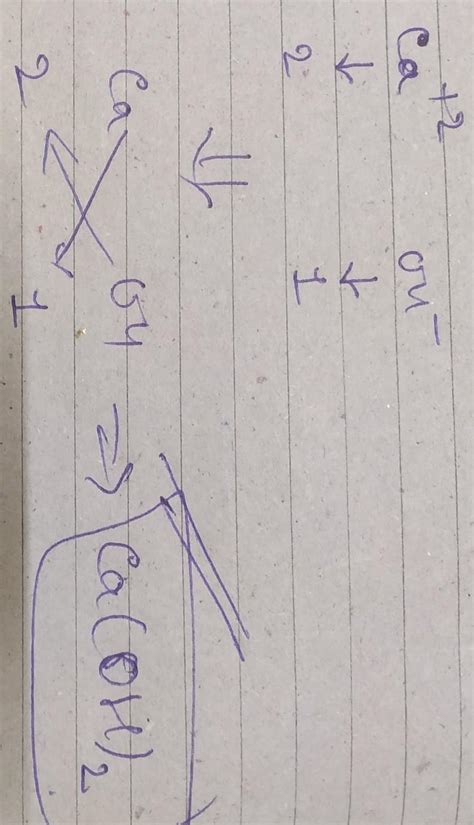 Ca+2 OH-
↓ ↓
2 1
⇓
Ca OH ⇒ Ca(OH)2
2 1